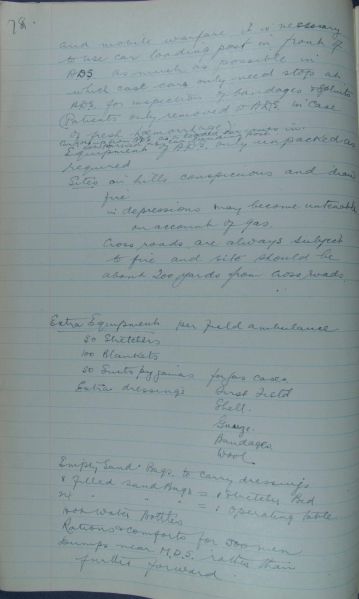 78.
and mobile warfare it is necessary
to use car loading post in front of
ADS as much as possible in
which case cars only need stop at
ADS for inspection of bandages & splints
(Patients only removed to ADS in case
of fresh hemorrhage)
Equipment of ADS only unpacked as
required
Sites on hills conspicuous and draw
fire
in depressions may become untenable
on account of gas.
Cross roads are always subject
to fire and site should be
about 200 yards from cross roads.
Extra Equipment per Field ambulance
50 Stretchers
100 Blankets
50 Suits pyjamas for gas cases
Extra dressings First Field
Shell.
Gauze.
Bandages
Wool.
Empty Sand Bags to carry dressings
8 filled sand Bags = 1 Stretcher Bed
" " " = 1 Operating table
Hot Water Bottles
Rations & comforts for 500 men
Dumps near M.D.S. rather than
further forward.